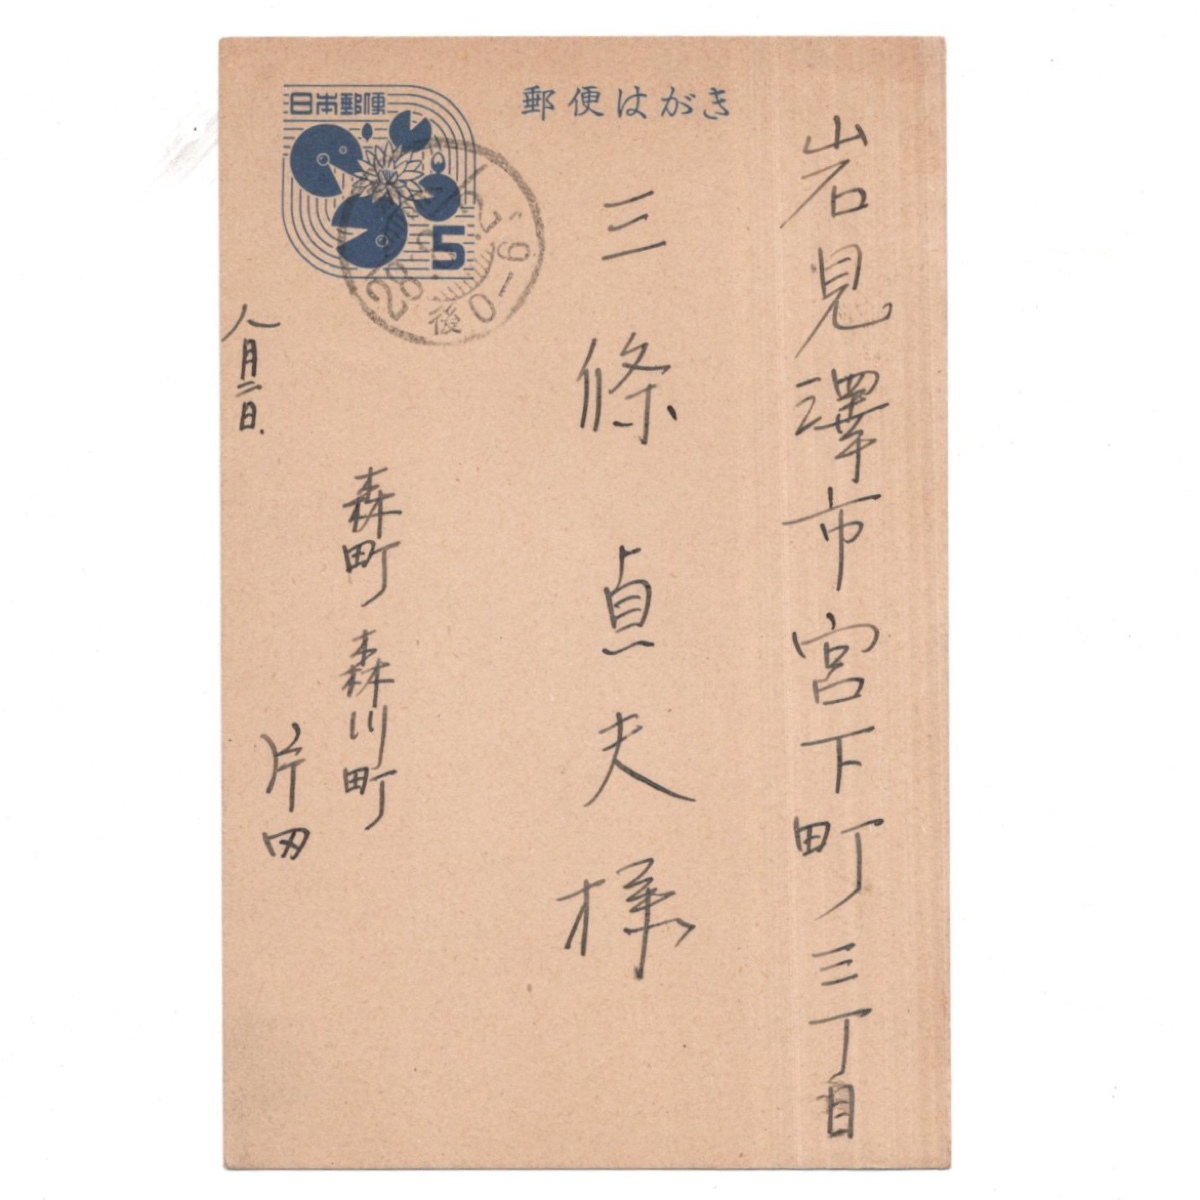 郵便はがき
日本郵便
5
後 0-6
岩見澤市宮下町三丁目
三條貞夫様
八月二日.
森町森川町
片田